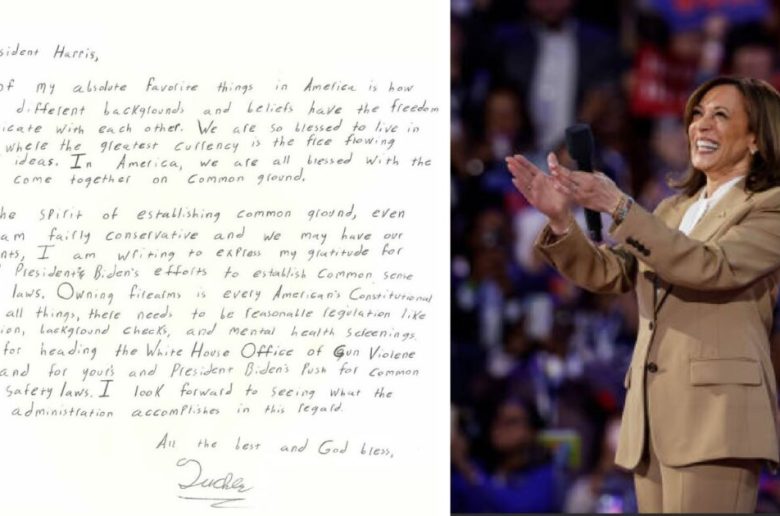 sident Harris,
of my absolute favorite things in America is how
different backgrounds and beliefs have the freedom
icate with each other. We are so blessed to live in
where the greatest currency is the free flowing
ideas. In America, we are all blessed with the
come together on common ground.
he spirit of establishing common ground, even
am fairly conservative and we may have our
nts, I am writing to express my gratitude for
President's Biden's efforts to establish common sense
laws. Owning firearms is every American's Constitutional
all things, there needs to be reasonable regulation like
ion, background checks, and mental health screenings.
for heading the White House Office of Gun Violene
and for your's and President Biden's Push for Common
Safety laws. I look forward to seeing what the
administration accomplishes in this regard.
All the best and God bless,
Tucker